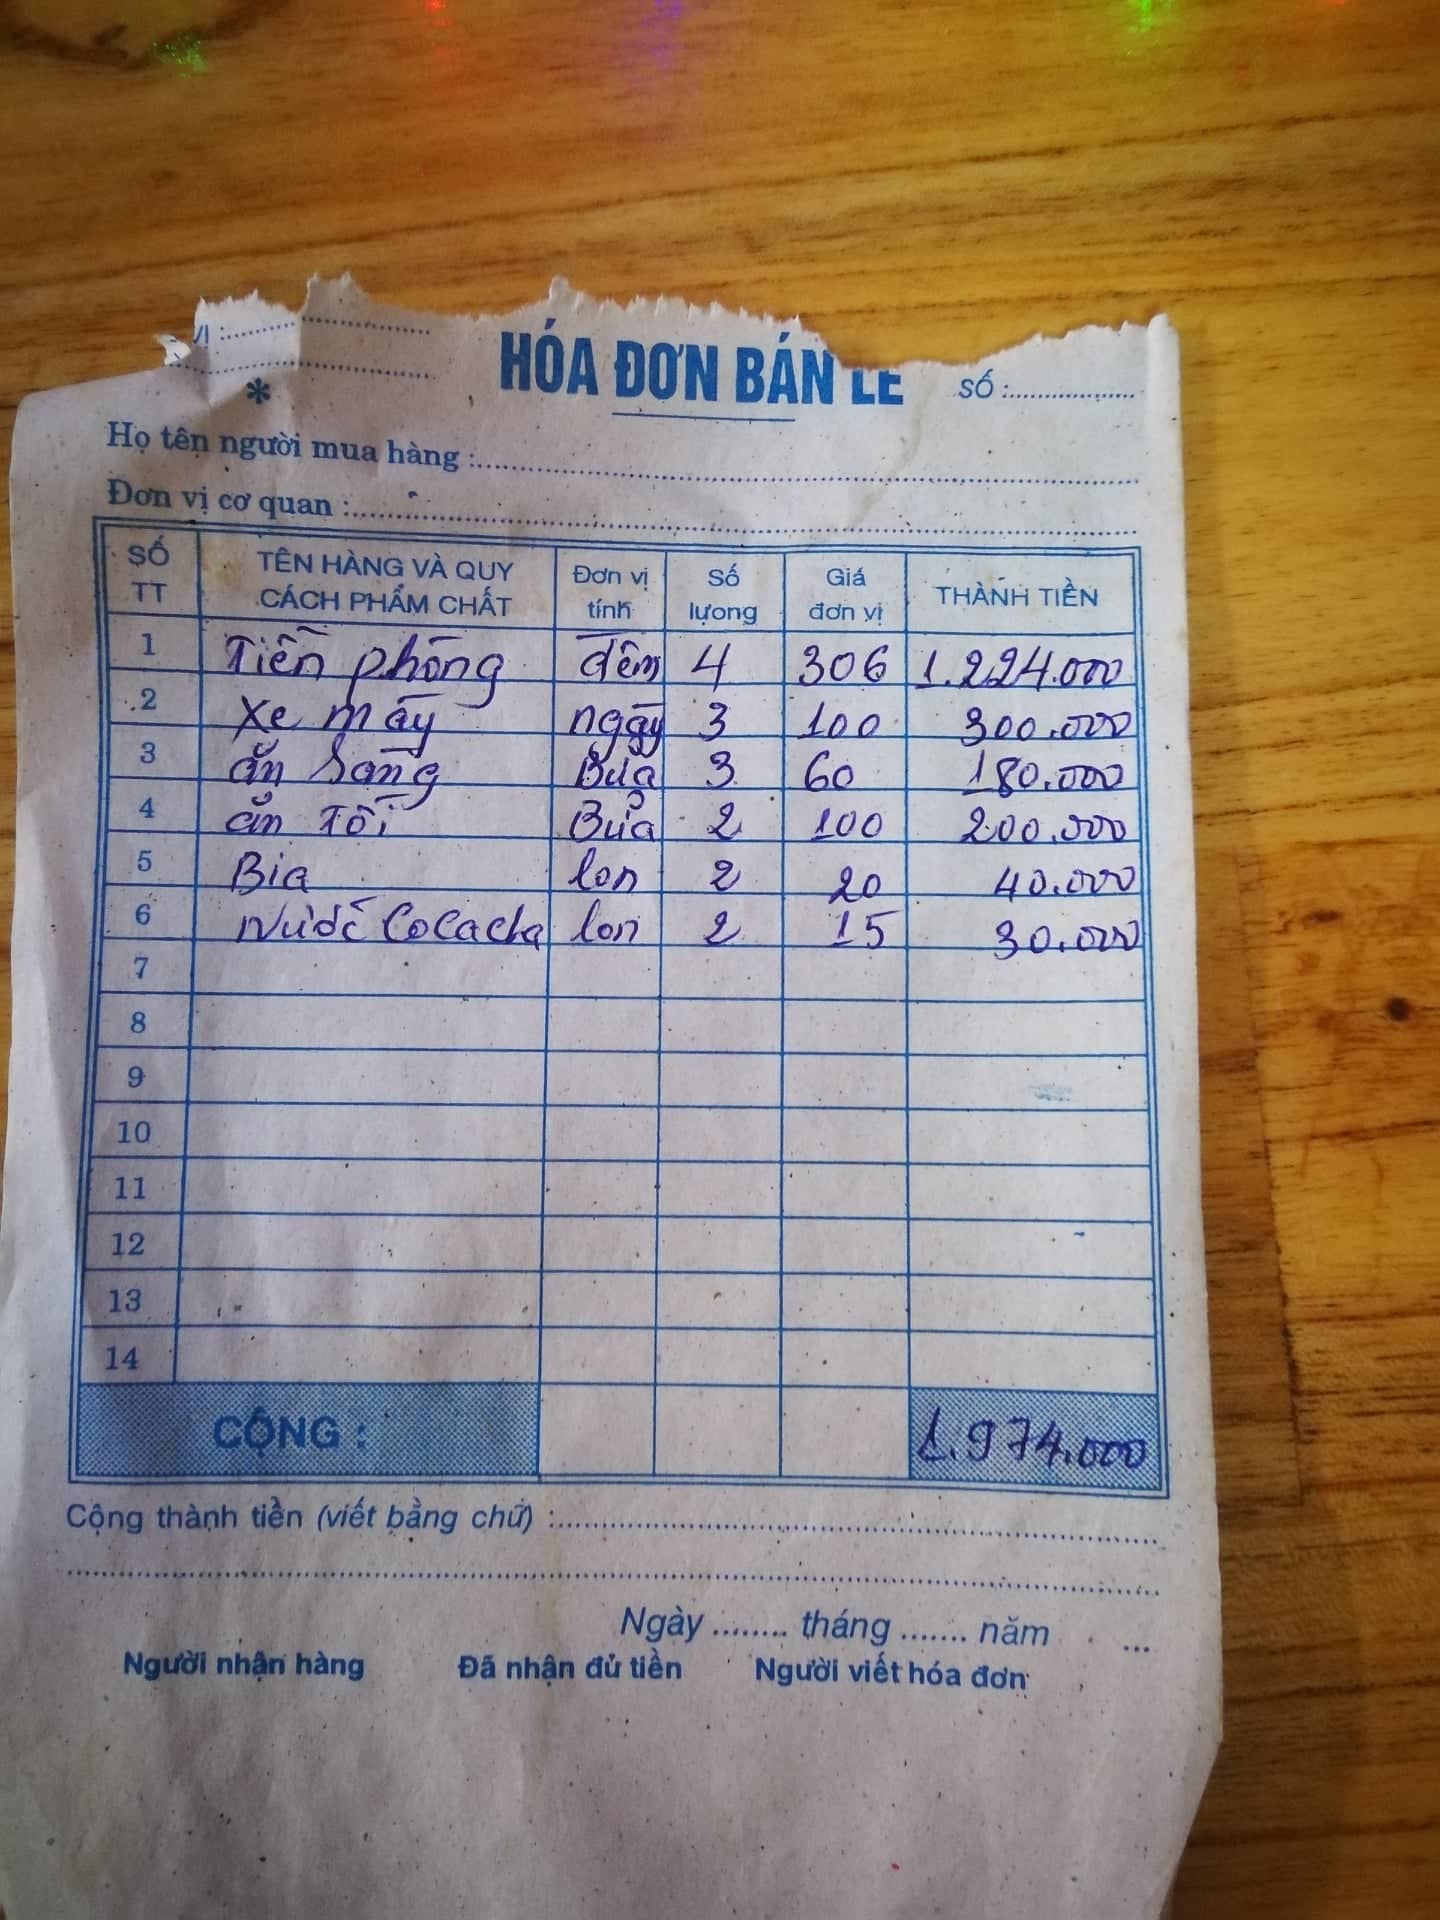 VỊ :
* HÓA ĐƠN BÁN LẺ SỐ :
Họ tên người mua hàng :
Đơn vị cơ quan :
SỐ TT TÊN HÀNG VÀ QUY CÁCH PHẨM CHẤT Đơn vị tính Số lượng Giá đơn vị THÀNH TIỀN
1 Tiền phòng đêm 4 306 1.224.000
2 Xe máy ngày 3 100 300.000
3 ăn Sáng Bửa 3 60 180.000
4 ăn Tối Bửa 2 100 200.000
5 Bia lon 2 20 40.000
6 Nước CoCaCla lon 2 15 30.000
7
8
9
10
11
12
13
14
CỘNG : 1.974.000
Cộng thành tiền (viết bằng chữ) :
Ngày ........ tháng ....... năm ...
Người nhận hàng Đã nhận đủ tiền Người viết hóa đơn